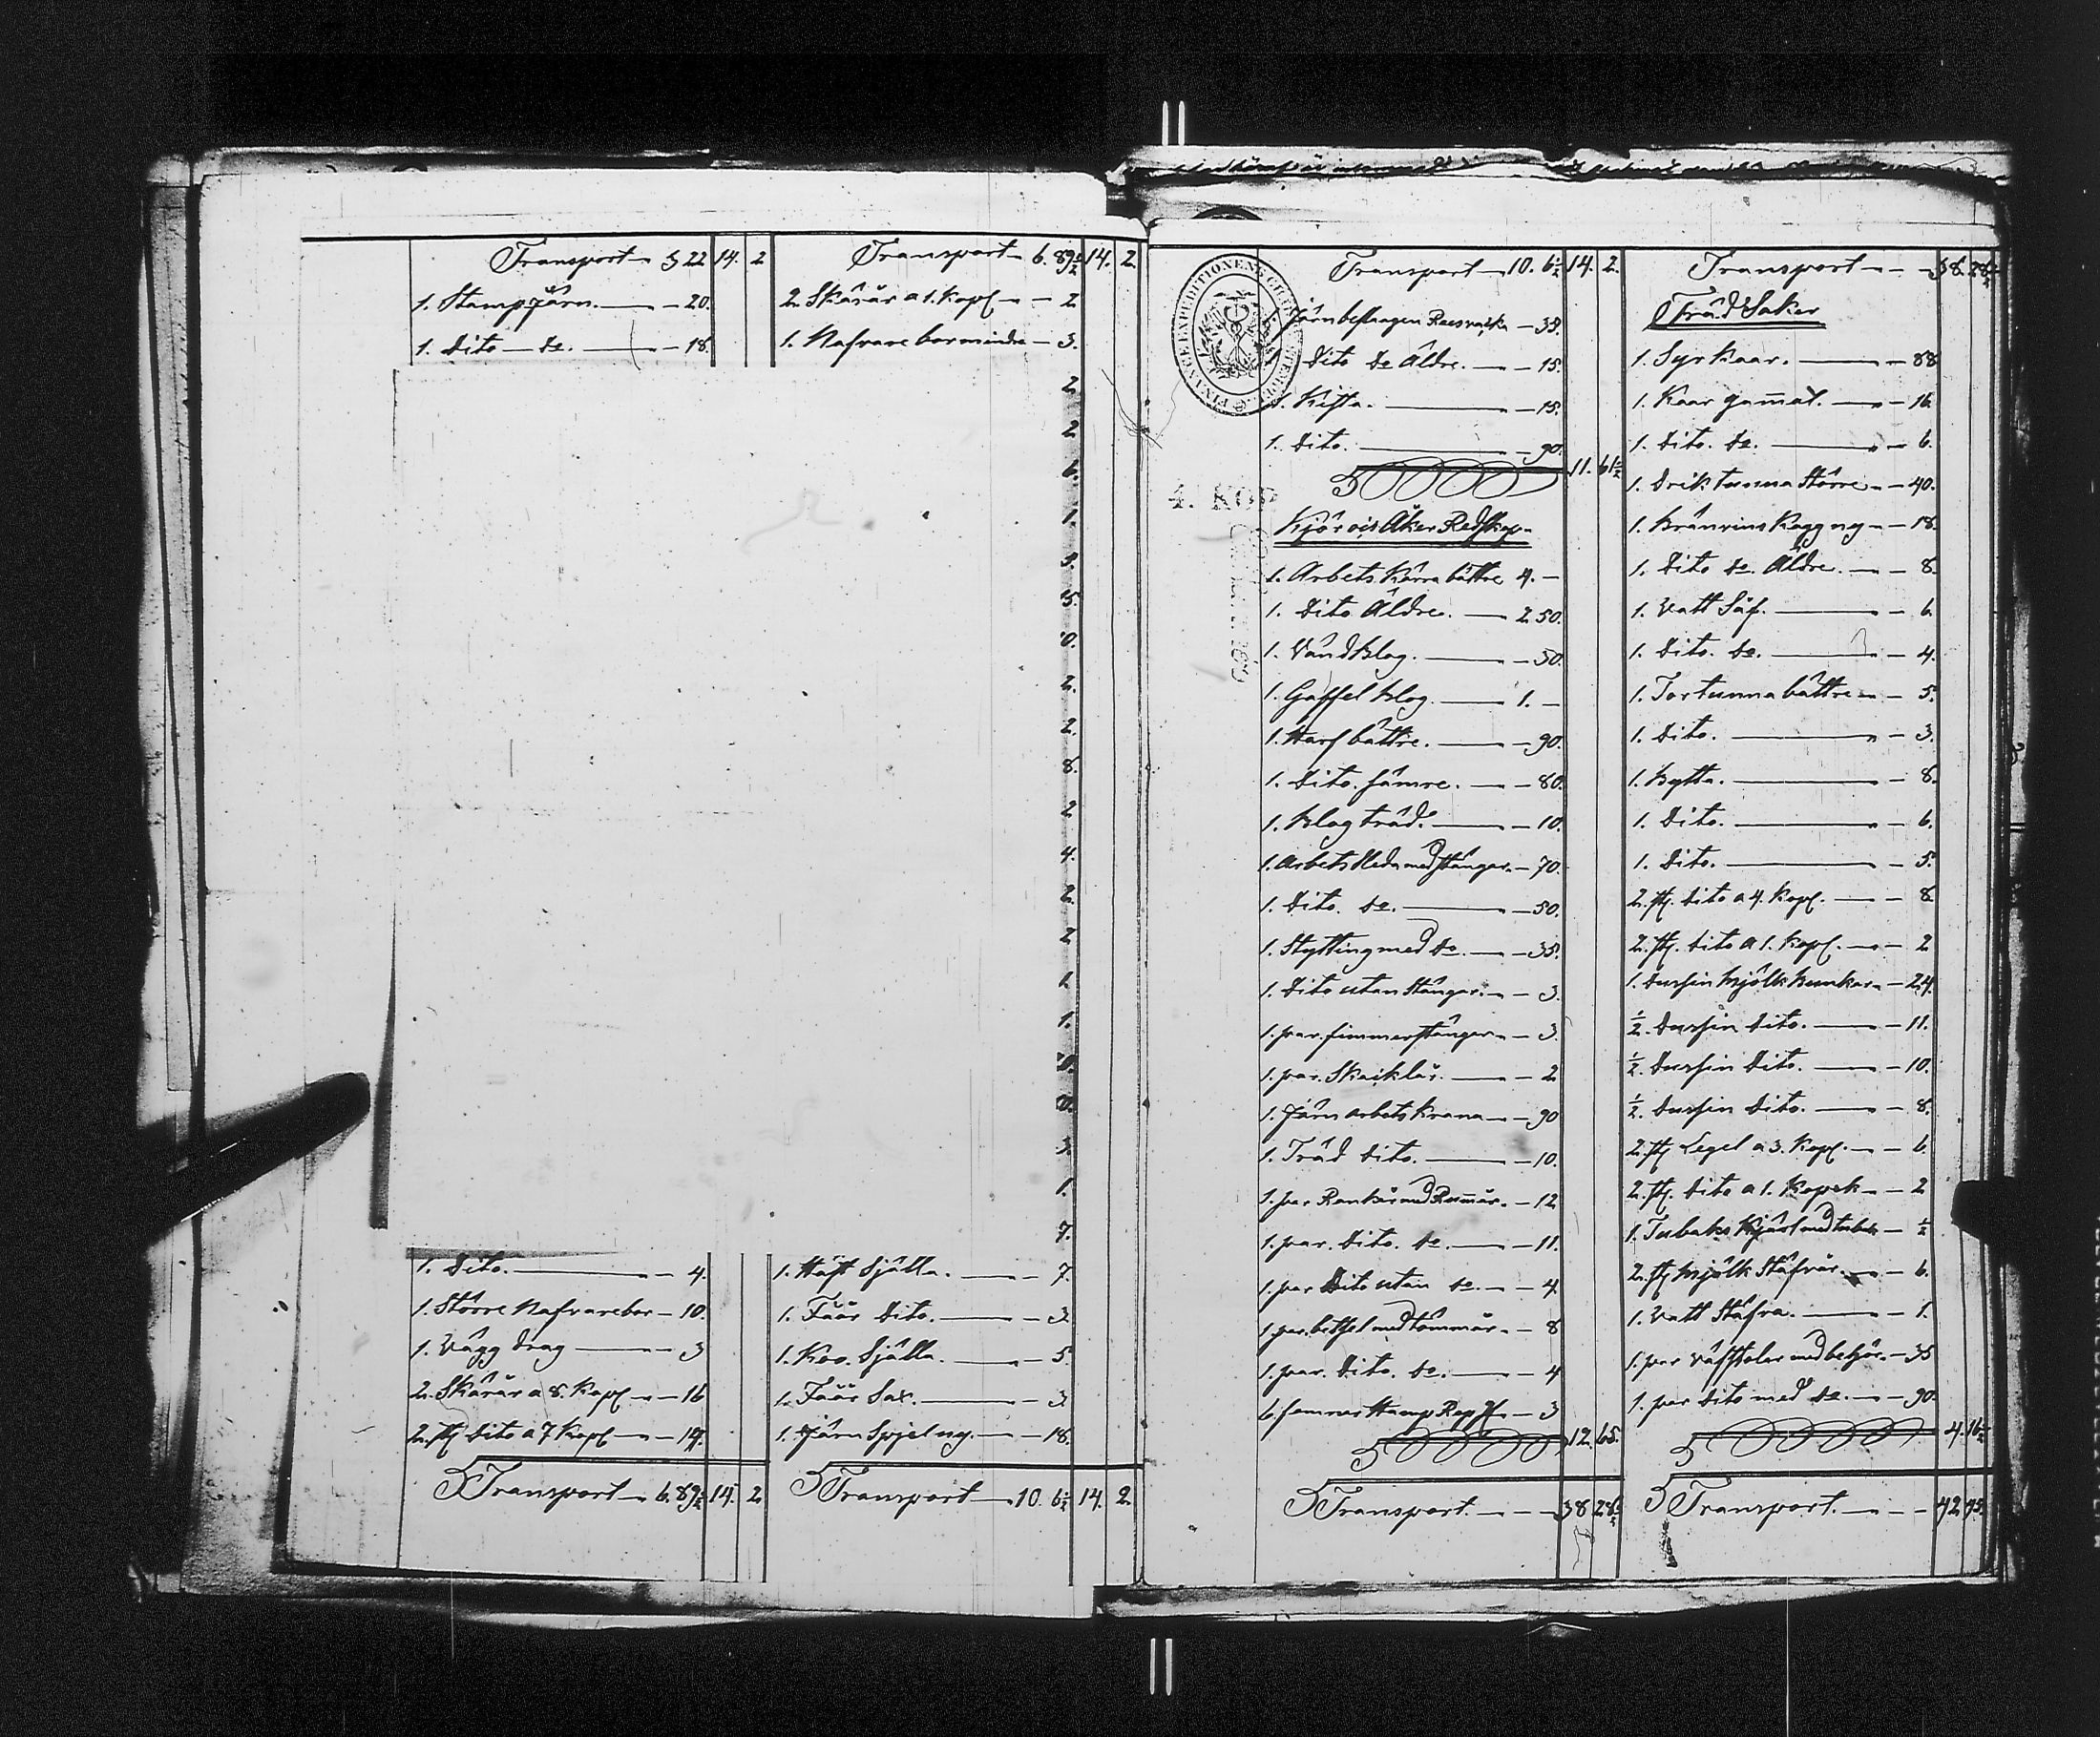 Transport 5 22 14. 2
1. Stampjärn. 20.
1. Dito do. 18.
1. Dito. 4.
1. Större Nafvarebor 10.
1. Vägg drag 3
2. Skäror a 8. Kopf 16
2. st Dito a 7 Kopf 14.
Transport 6. 89½ 14. 2
Transport 6. 89½ 14. 2.
2. Skäror a 1. Kopf 2
1. Nafvare bor mindre 3.
2.
2
6.
1.
3.
5.
0.
2.
2.
8.
2
4.
2.
2
1.
1.
0.
3.
1.
7.
1. Häst Själla. 7.
1. Fåår Dito. 3.
1. Koo. Själla. 5.
1. Fåår Sax. 3.
1. Järn Spjel ny. 18.
Transport 10. 6½ 14. 2.
Transport 10. 6½ 14. 2.
Järnbeslagen 35.
1. Dito do Äldre. 15.
1. Kista. 15.
1. Dito. 90.
11. 61½
4. KOP
Kjör ois Åker Redskap
1. Arbets Kärra bättre 4. –
1. Dito Äldre. 2 50.
1. Vändplog. 50.
1. Gaffel plog 1. –
1. Harf bättre. 90.
1. Dito. sämre. 80.
1. plog träd. 10.
1. Arbets släda med stänger. 70.
1. Dito. do. 50.
1. Stytting med do. 35.
1. Dito utan Stänger. 3.
1. par. fimmerstänger 3.
1. par. Skaiklor. 2
1. Järn arbets Krana 90
1. Träd Dito. 10.
1. par Rankor med Remmar. 12
1. par. Dito. do. 11.
1. par Dito utan do. 4
1. par. bethsel med tömmar. 8
1. par. Dito. do. 4
6. famnar Hamp Rep st 3
12. 65.
Transport. 38 28½
Transport 38. 28½
Träd Saker
1. Syr Kaar. 88
1. Kaar gamalt. 16.
1. Dito. do. 6.
1. Driktunna Större 40.
1. Bränvins Kagg ny 18.
1. Dito do. Äldre. 8.
1. Vatt Så. 6.
1. Dito. do. 4.
1. Tortunna bättre 5.
1. Dito. 3.
1. Bytta. 8.
1. Dito. 6.
1. Dito. 5.
2. st. Dito a 4. Kopf. 8
2. st. Dito a 1. Kopf. 2
1. Dussin Mjölk bunkar 24.
½. Dussin Dito. 11.
½. Dussin Dito. 10.
½. Dussin Dito. 8.
2. st Legel a 3. Kopf. 6.
2. st. Dito a 1. Kopek 2
1. Tobaks Kjärl med tobak ½
2. st Mjölk Stäfvor. 6.
1. Vatt Stäfva. 1.
1. par väfstolar med behör. 35
1. par Dito med do. 90.
4. 16½
Transport. 42 45.